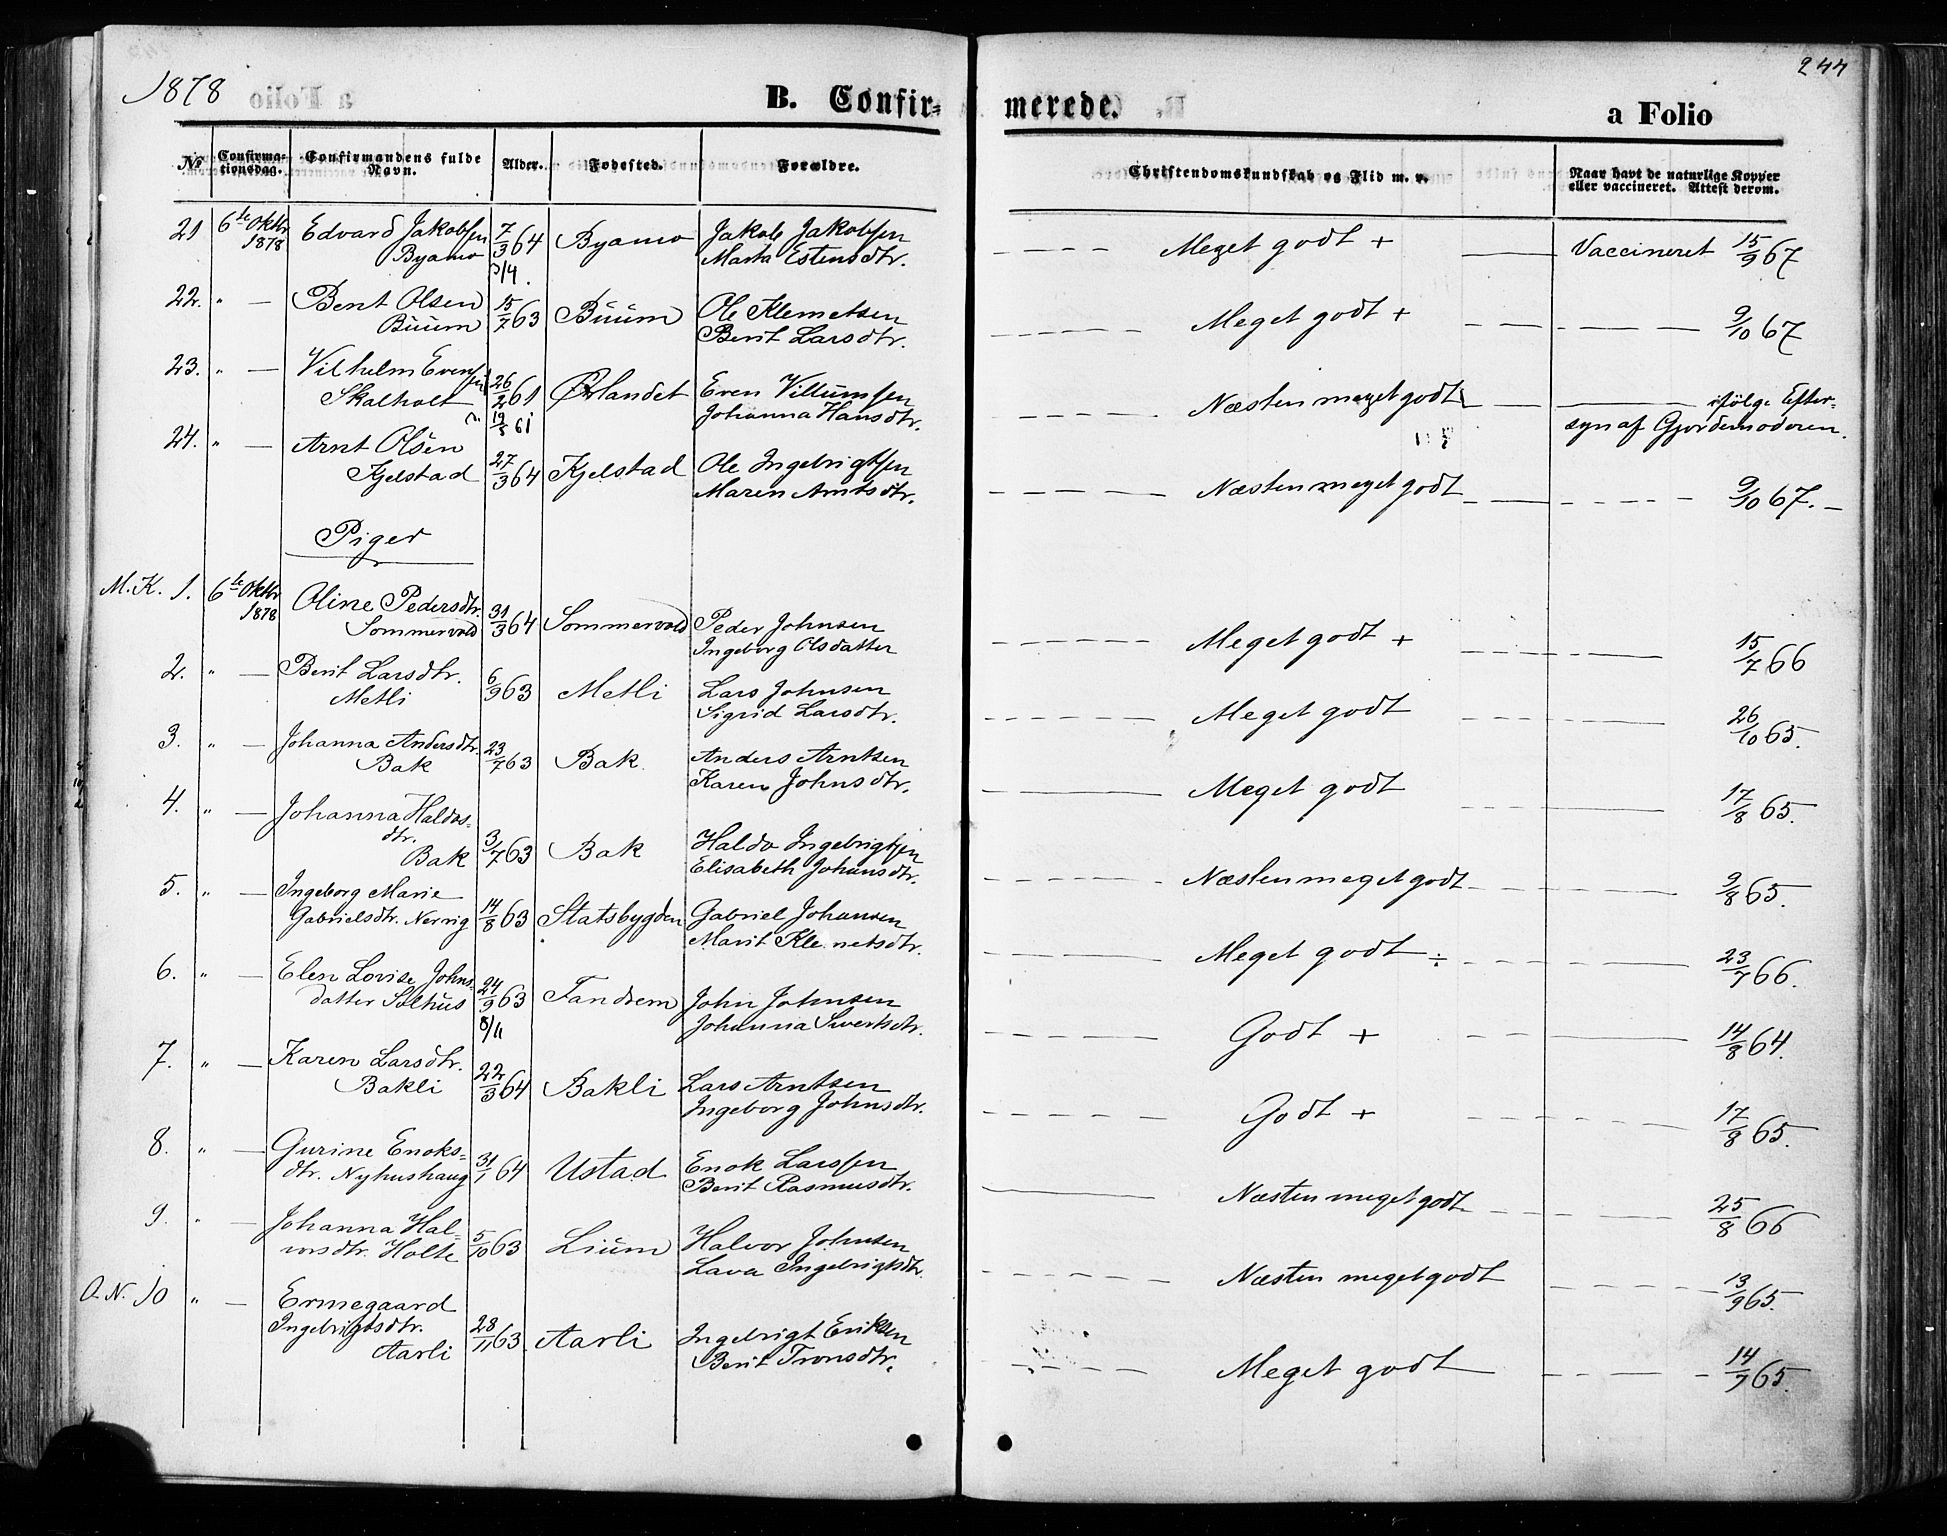 1878
244
B. Confir=
merede.
a Folio
No
Confirma=
tionsdag.
Confirmandens fulde
Navn.
Alder.
Fødested.
Forældre.
Christendomskundskab og Flid m. v.
Naar havt de naturlige Kopper
eller vaccineret. Attest derom.
21 6te Oktbr 1878 Edvard Jakobsen 7/3 64 Byamo Jakob Jakobsen — Meget godt + — Vaccineret 15/9 67
Byamo Marta Estensdtr.
22. " — Bent Olsen 15/7 63 Buum Ole Klemetsen — Meget godt + — 9/10 67
Buum Berit Larsdtr.
23. " — Vilhelm Evensen 26/2 61 Ørlandet Even Villumsen — Næsten meget godt — ifølge Efter=
Skalholt 61 Johanna Hansdtr. syn af Gjordemoderen.
24. " — Arnt Olsen 27/3 64 Kjelstad Ole Ingebrigtsen — Næsten meget godt — 9/10 67. —
Kjelstad Maren Arntsdtr.
Piger
M.K. 1. 6te Oktbr 1878 Oline Pedersdtr. 31/3 64 Sommervold Peder Johnsen — Meget godt + — 15/7 66
Sommervold Ingeborg Olsdatter
2. " — Berit Larsdtr. 6/9 63 Metli Lars Johnsen — Meget godt — 26/10 65.
Metli Sigrid Larsdtr.
3. " — Johanna Andersdtr. 23/7 63 Bak Anders Arntsen — Meget godt — 17/8 65.
Bak Karen Johnsdtr.
4. " — Johanna Haldos= 3/7 63 Bak Haldo Ingebrigtsen — Næsten meget godt — 9/8 65.
dtr.
Bak Elisabeth Johansdtr.
5. " — Ingeborg Marie 14/8 63 Statsbygden Gabriel Johansen — Meget godt ÷ — 23/7 66.
Gabrielsdtr. Nervig Marit Klemetsdtr.
6. " — Elen Lovise Johns= 24/9 63 Tandrem John Johnsen — Godt + — 14/8 64.
datter Solhus 8/11 Johanna Sivertsdtr.
7. " — Karen Larsdtr. 22/3 64 Bakli Lars Arntsen — Godt + — 17/8 65.
Bakli Ingeborg Johnsdtr.
8. " — Gurine Enoks= 31/1 64 Ustad Enok Larssen — Næsten meget godt — 25/8 66
dtr. Nyhushaug Berit Rasmusdtr.
9. " — Johanna Hal= 5/10 63 Lium Halvor Johnsen — Næsten meget godt — 13/9 65.
vorsdtr. Holte Lava Ingebrigtsdtr.
O.N. 10 " — Ermegaard 28/11 63 Aarli Ingebrigt Eriksen — Meget godt — 14/9 65.
Ingebrigtsdtr.
Aarli Berit Tronsdtr.